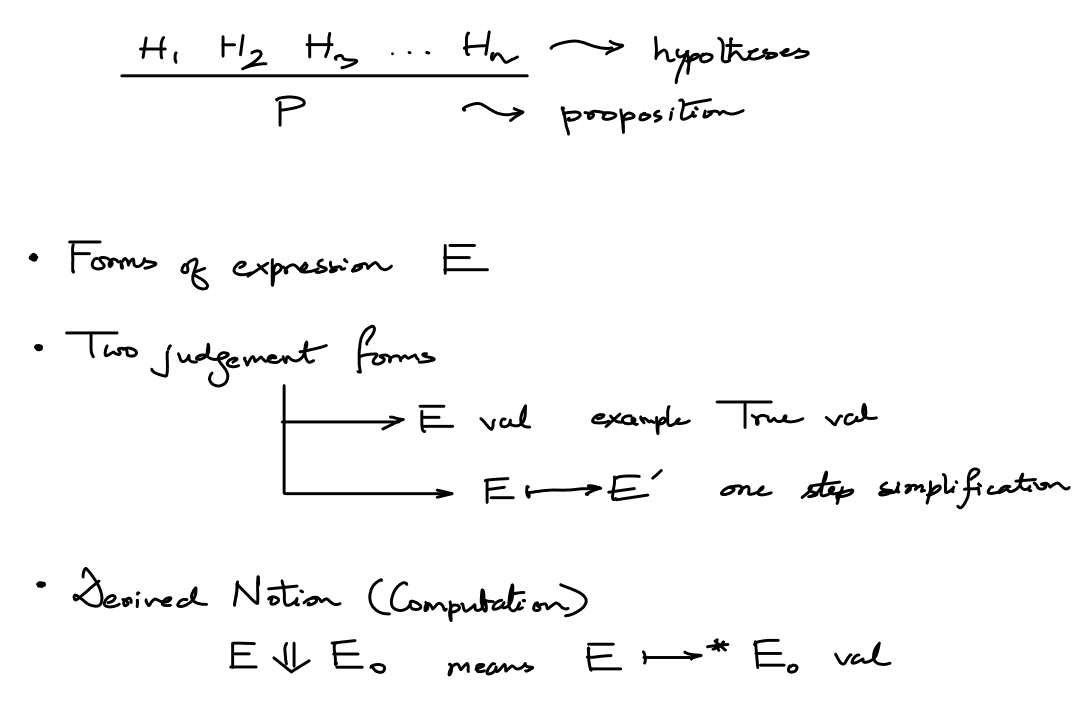 H₁ H₂ H₃ ... Hₙ ⟿ hypotheses
P ⟿ proposition
• Forms of expression E
• Two judgement forms
E val example True val
E ⟼ E′ one step simplification
• Derived Notion (Computation)
E ⇓ E₀ means E ⟼* E₀ val